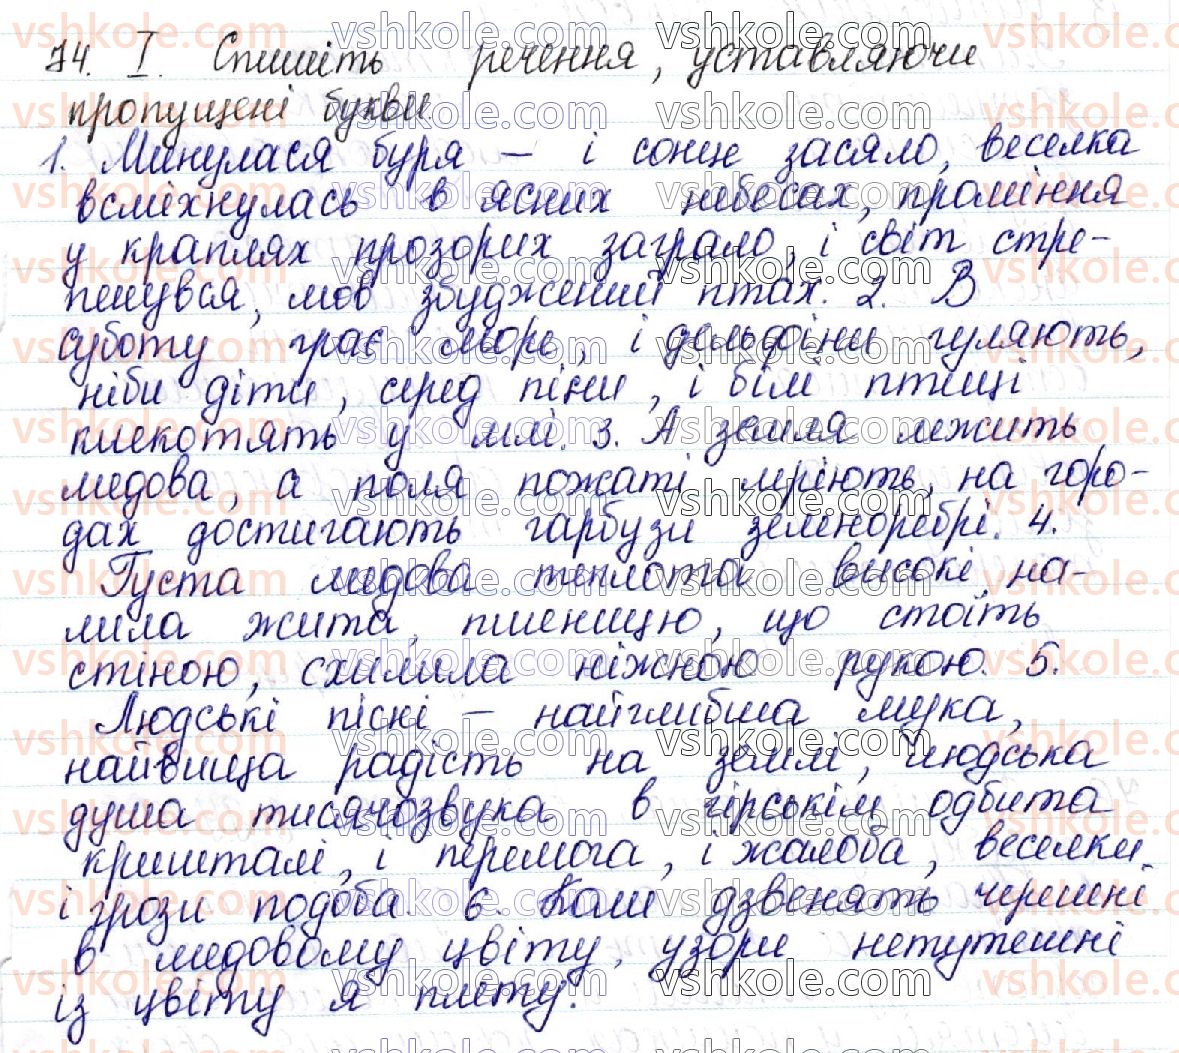 74. I. Спишіть речення, уставляючи
пропущені букви
1. Минулася буря – і сонце засяло, веселка
всміхнулась в ясних небесах, проміння
у краплях прозорих заграло, і світ стре-
пенувся, мов збуджений птах. 2. В
суботу грає море, і дельфіни гуляють,
ніби діти, серед піни, і білі птиці
кигекотять у млі. 3. А земля лежить
медова, а поля пожаті мріють, на горо-
дах достигають гарбузи зеленоребрі. 4.
Густа медова теплота високі на-
лила жита, пшеницю, що стоїть
стіною, схилила ніжною рукою. 5.
Людські пісні – найглибша мука,
найвища радість на землі, людська
душа тисячозвука в гірськім одбита
кришталі, і перемога, і жалоба, веселки
і грози подоба. 6. Коли дзвенять черешні
в медовому цвіту, узори нетутешні
із цвіту я плету.